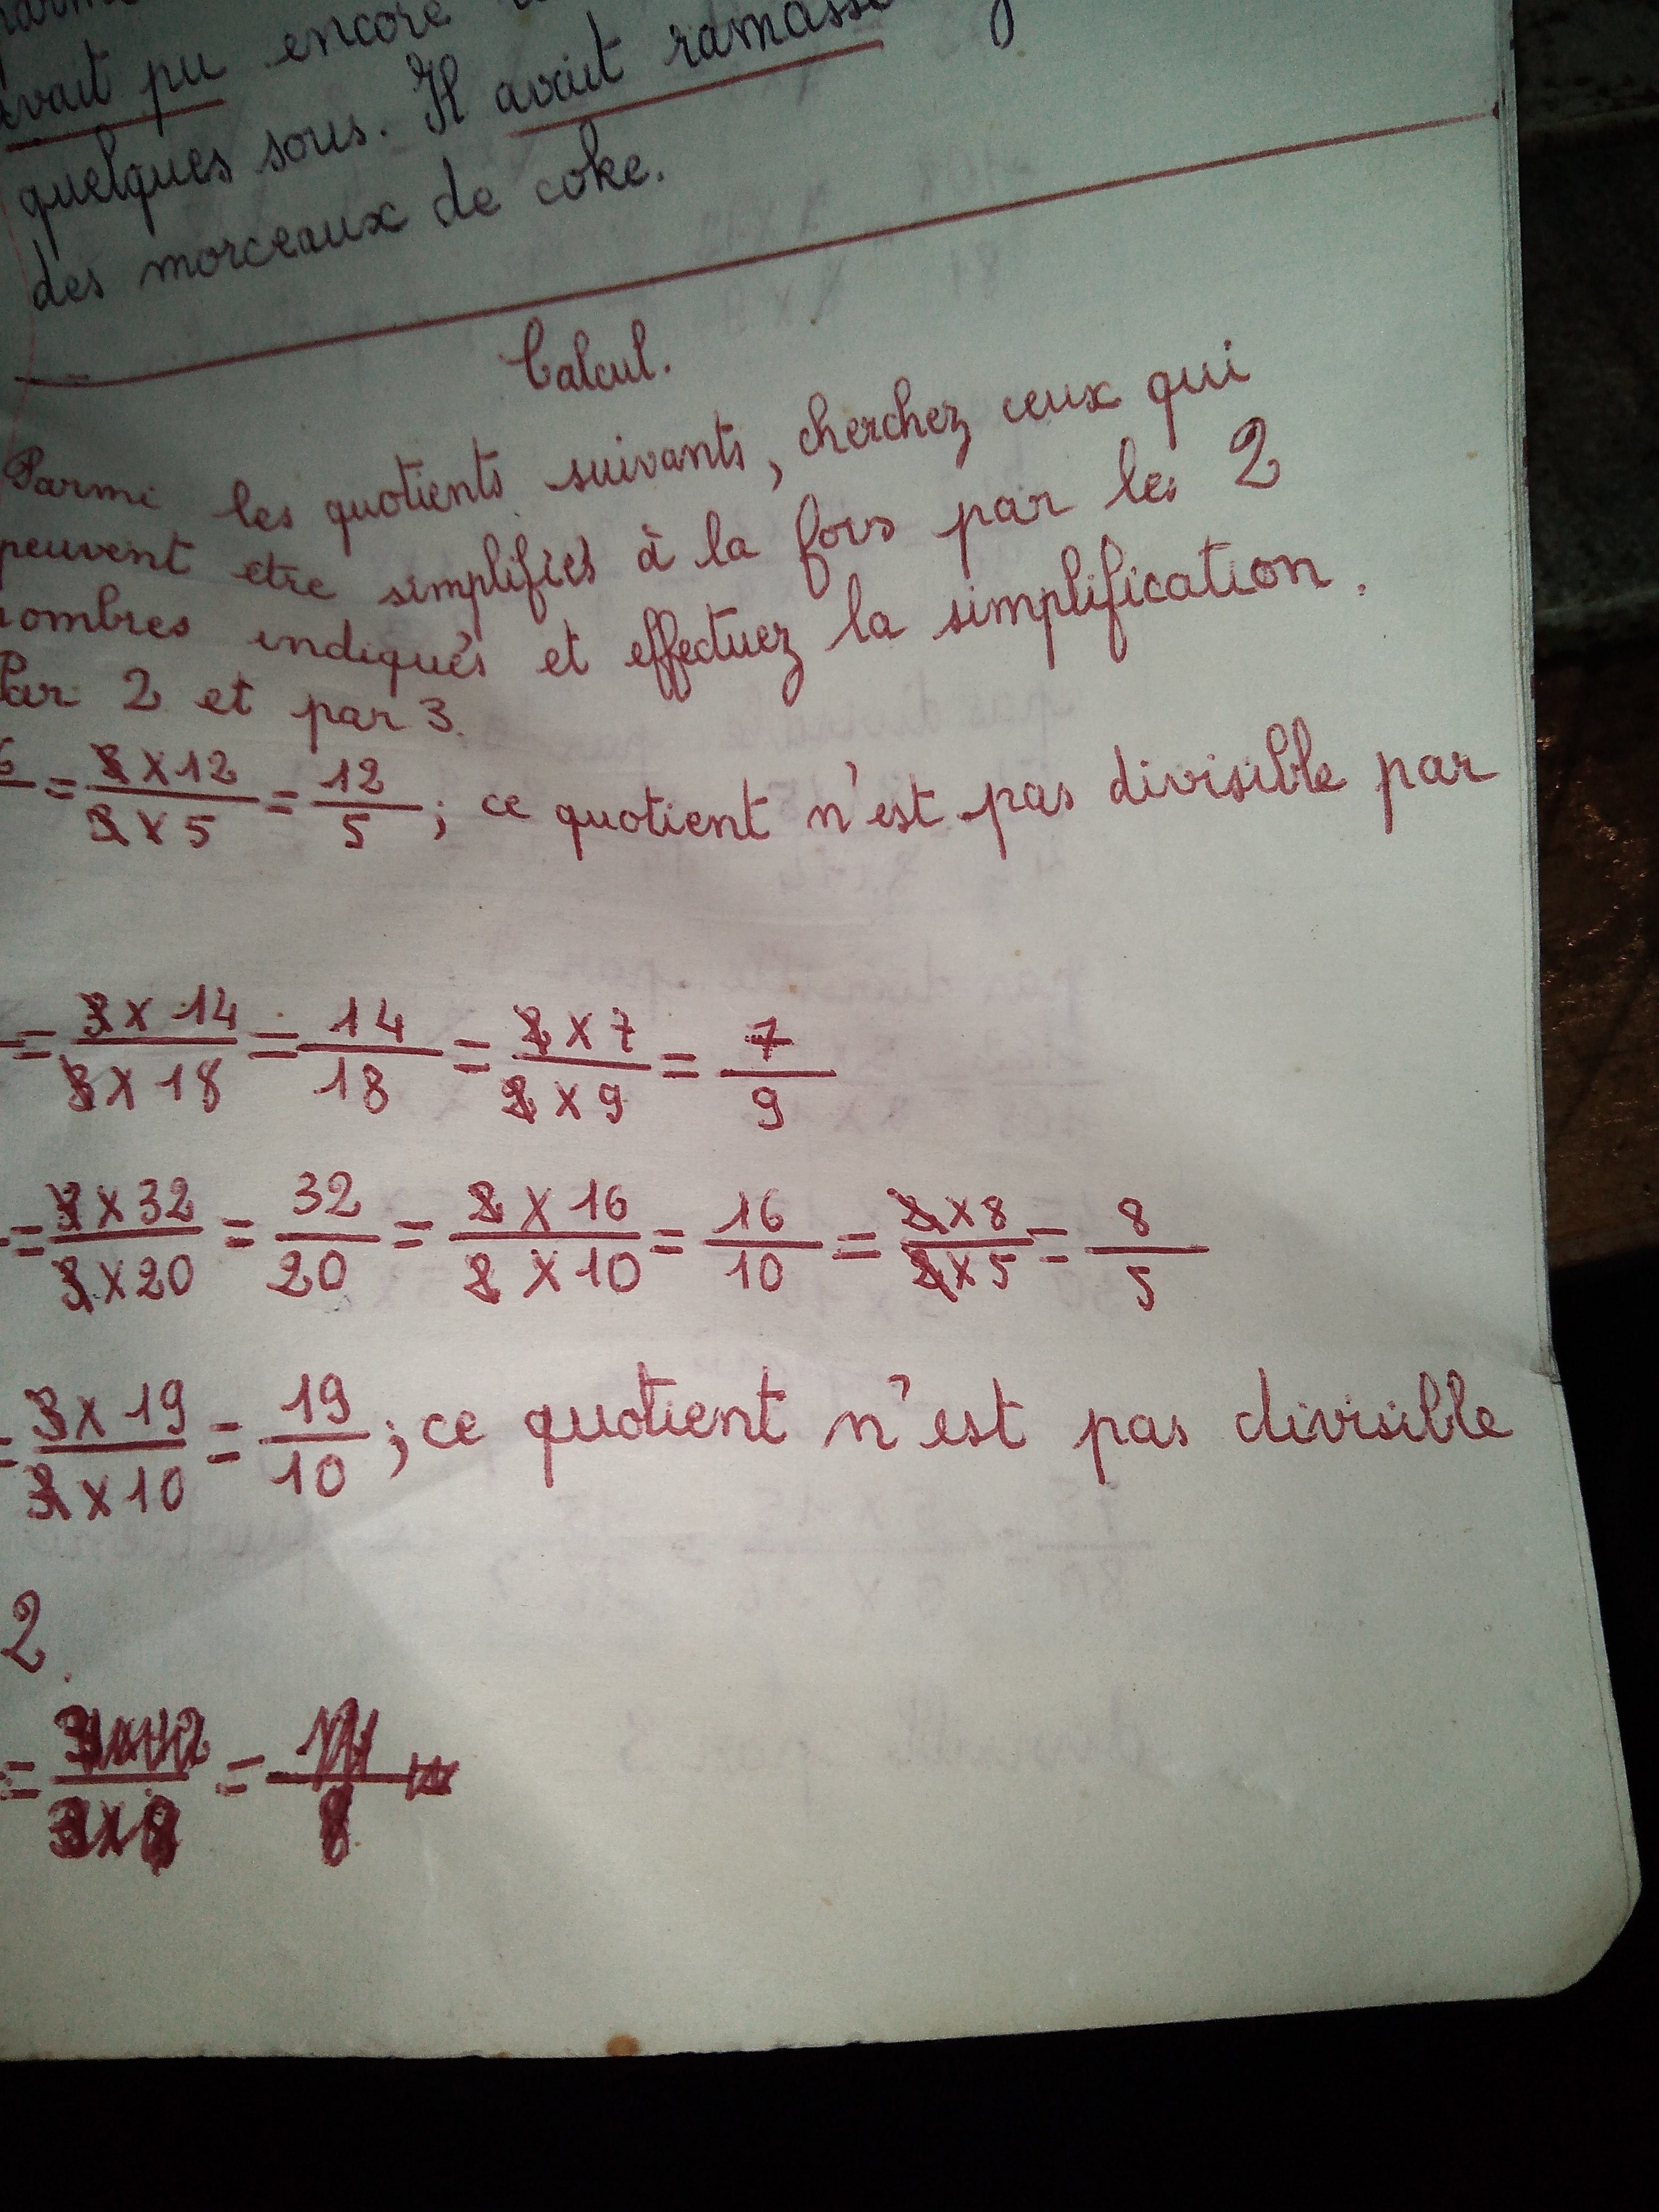 vait pu encore
quelques sous. Il avait ramassé
des morceaux de coke.
Calcul.
Parmi les quotients suivants, cherchez ceux qui
peuvent etre simplifiés à la fois par les 2
nombres indiqués et effectuez la simplification.
Par 2 et par 3.
6 = 3 x 12 / 3 x 5 = 12 / 5 ; ce quotient n'est pas divisible par
= 3 x 14 / 3 x 18 = 14 / 18 = 2 x 7 / 2 x 9 = 7 / 9
= 3 x 32 / 3 x 20 = 32 / 20 = 2 x 16 / 2 x 10 = 16 / 10 = 2 x 8 / 2 x 5 = 8 / 5
= 3 x 19 / 3 x 10 = 19 / 10 ; ce quotient n'est pas divisible
2.